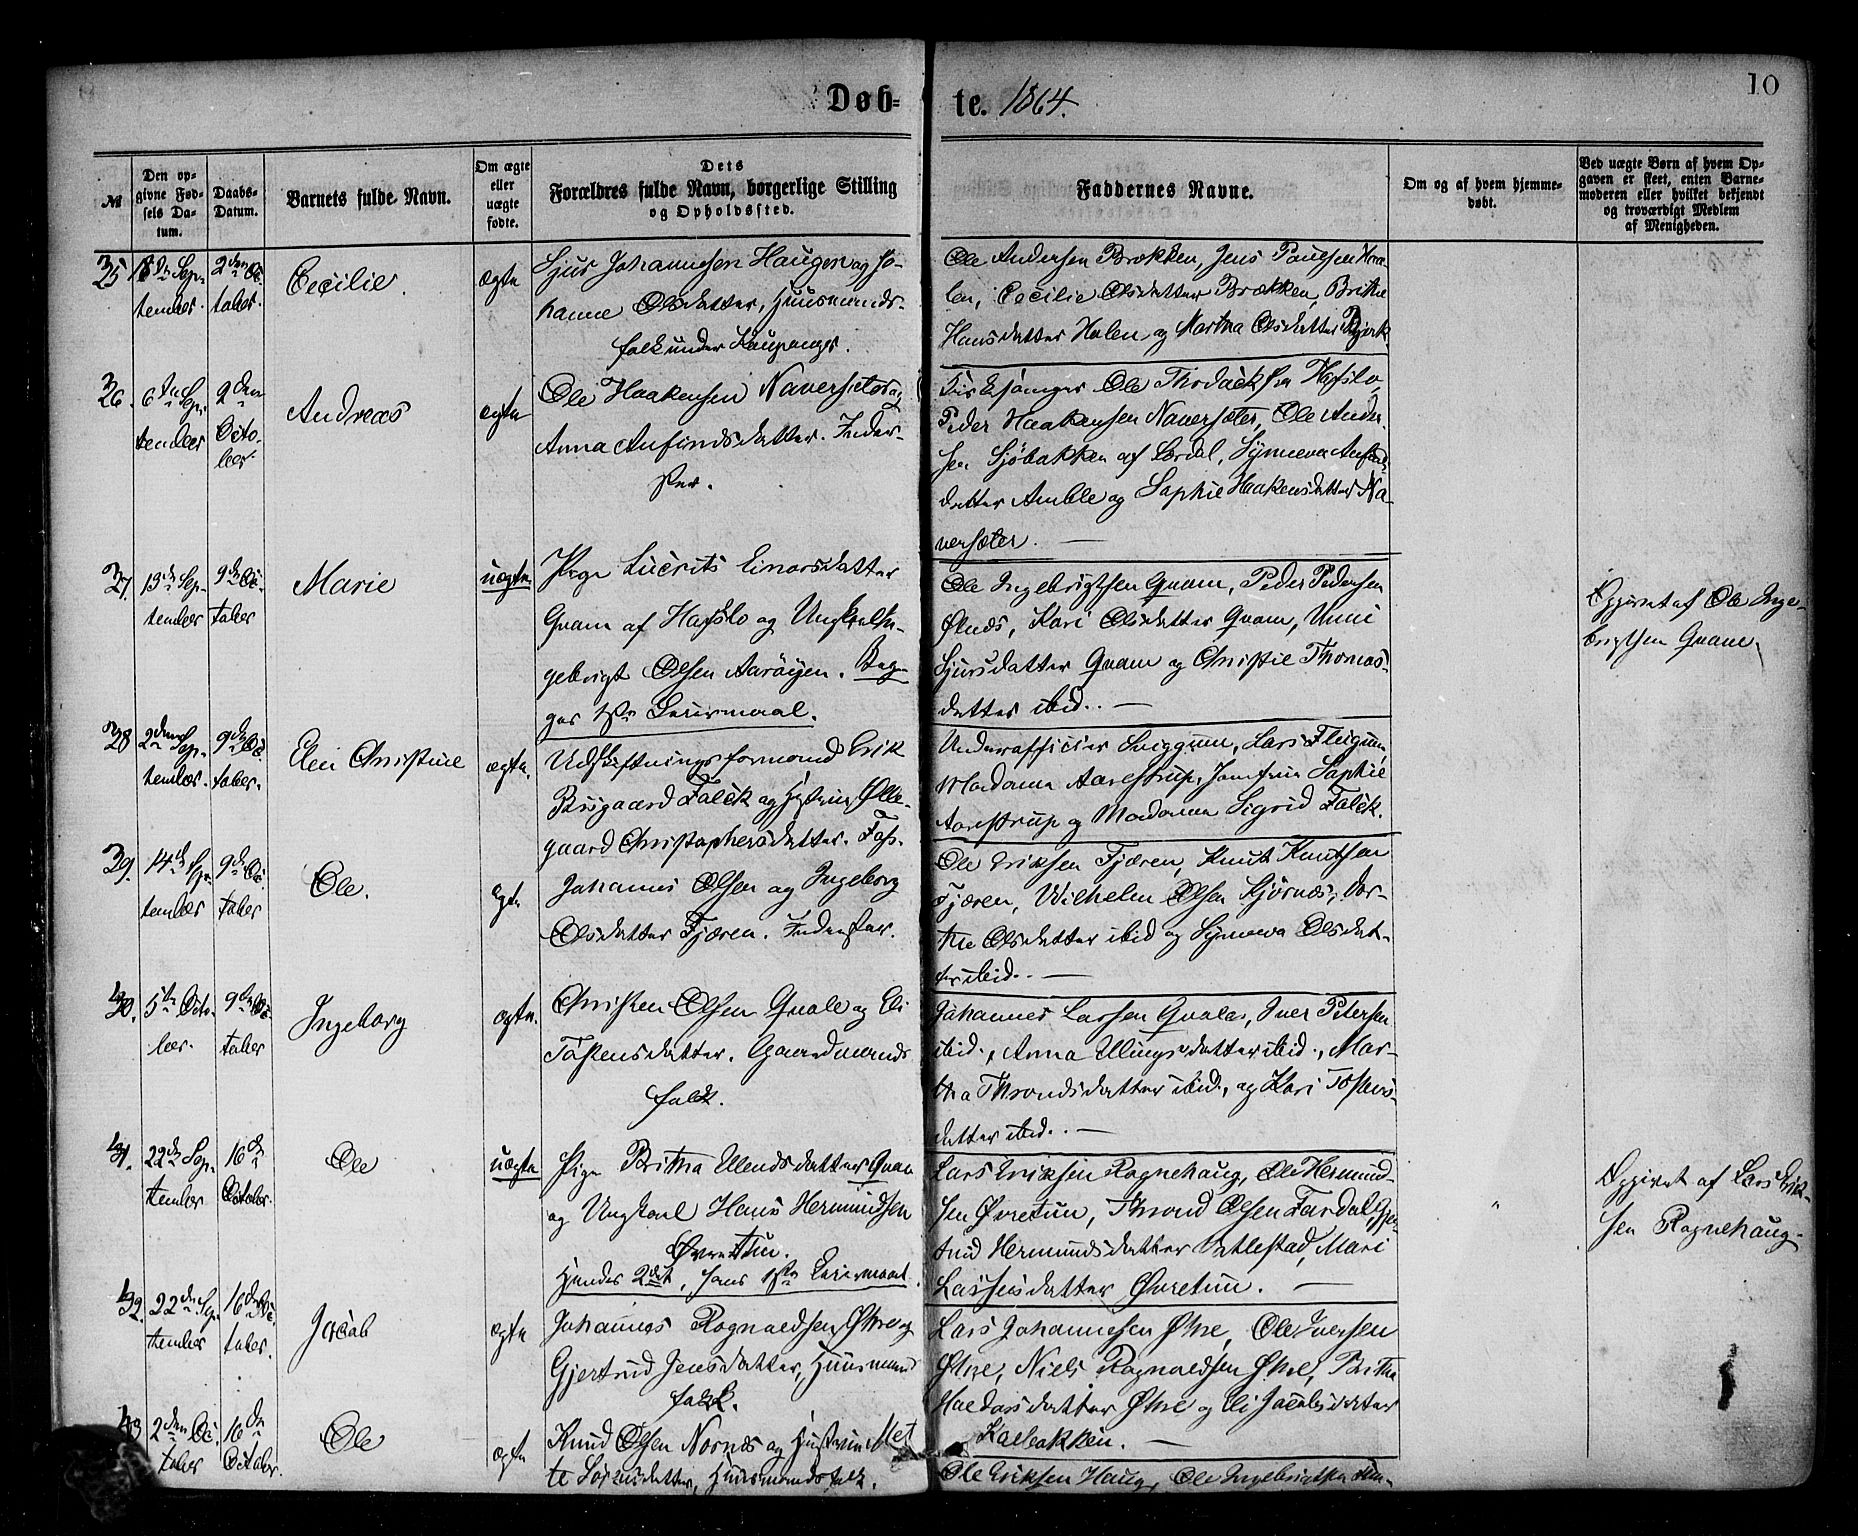 Døb-te. 1864.
10
№
Den op-
givne Fød-
sels Da-
tum.
Daabs-
Datum.
Barnets fulde Navn.
Om ægte
eller
uægte
fødte.
Dets
Forældres fulde Navn, borgerlige Stilling
og Opholdssted.
Faddernes Navne.
Om og af hvem hjemme-
døbt.
Ved uægte Børn af hvem Op-
gaven er skeet, enten Barne-
moderen eller hvilket bekjendt
og troværdigt Medlem
af Menigheden.
35
18de Sep-
tember.
2den Oc-
tober.
Cecilie.
ægte
Sjur Johannesen Haugen og Jo-
hanne Olsdatter, Huusmands-
folk under Kaupanger.
Ole Andersen Brækken, Jens Paulsen Ha-
len, Cecilie Olsdatter Brækken, Brithe
Hansdatter Halen og Martha Olsdatter Bjørk.
36.
6te Sep-
tember
2den
Octo-
ber.
Andreas
ægte
Ole Haakensen Naversæter og
Anna Anfindsdatter. Inder-
ster.
Kirkesanger Ole Hafslo,
Peder Haakensen Naversæter, Ole Ander-
sen Sjøbakken af Lærdal, Synneva Anfinds-
datter Amble og Sophie Haakensdatter Na-
versæter. —
37.
13de Sep-
tember
9de Oc-
tober
Marie
uægte
Pige Lucrits Einarsdatter
Quam af Hafslo og Ungkarl In-
gebrigt Olsen Aarøyen. Beg-
ges 1ste Leiermaal.
Ole Ingebrigtsen Quam, Peder Pedersen
Ølnæs, Kari Olsdatter Quam, Unni
Sjursdatter Quam og Christie Thomas-
datter ibid. —
Opgivet af Ole Inge-
brigtsen Quam.
38
2den Sep-
tember.
9de Oc-
tober.
Elen Christine
ægte.
Udskiftningsformand Erik
Falck og Hustru Olle-
gaard Christophersdatter. Fos.
Underofficier Lars Flugum,
Madame Aarestrup, Jomfru Sophie
Aarestrup og Madame Sigrid Falck.
39.
14de Sep-
tember
9de Oc-
tober
Ole.
ægte
Johannes Olsen og Ingeborg
Olsdatter Fjæren. Inderster.
Ole Eriksen Fjæren, Knut Knutsen
Fjæren, Wilhelm Olsen Stjørnæs, Dor-
the Olsdatter ibid og Synneva Olsdat-
ter ibid. —
40.
5te Octo-
ber.
9de Oc-
tober
Ingeborg
ægte.
Christen Olsen Quale og Eli
Tostensdatter. Gaardmands-
folk.
Johannes Larsen Quale, Iver Petersen
ibid., Anna Ellingsdatter ibid., Mar-
tha Throndsdatter ibid., og Kari Tostens-
datter ibid. —
41.
22de Sep-
tember
16de
October.
Ole
uægte
Pige Britha Erlendsdatter Quam
og Ungkarl Hans Hermundsen
Øvretun.
Hendes 2det, hans 1ste Leiermaal.
Lars Eriksen Rognehaug, Ole Hermund-
sen Øvretun, Thrond Olsen Fardal, Gjer-
trud Hermundsdatter Vatlestad, Mari
Lassesdatter Øvretun. —
Opgivet af Lars Erik-
sen Rognehaug.
42.
22de Sep-
tember
16de Oc-
tober.
Jacob
ægte
Johannes Rognaldsen Øhre og
Gjertrud Jensdatter, Huusmands-
folk.
Lars Johannesen Øhre, Ole Iversen
Øhre, Niels Rognaldsen Øhre, Britha
Haldorsdatter Øhre og Eli Jacobsdatter
Kalbakken. —
43
2den Oc-
tober
16de
October.
Ole
ægte
Knud Olsen Nornæs og Hustru Met-
te Larsdatter, Huusmandsfolk.
Ole Eriksen Haug, Ole Ingebrigtsen